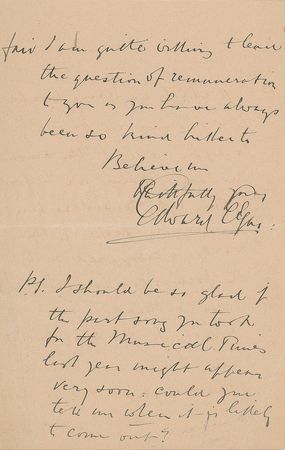 fair I am quite willing to leave
the question of remuneration
to you as you have always
been so kind hitherto
Believe me
Faithfully yours
Edward Elgar.
PS. I should be so glad if
the part song you took
for the Musical Times
last year might appear
very soon: could you
tell me when it is likely
to come out?